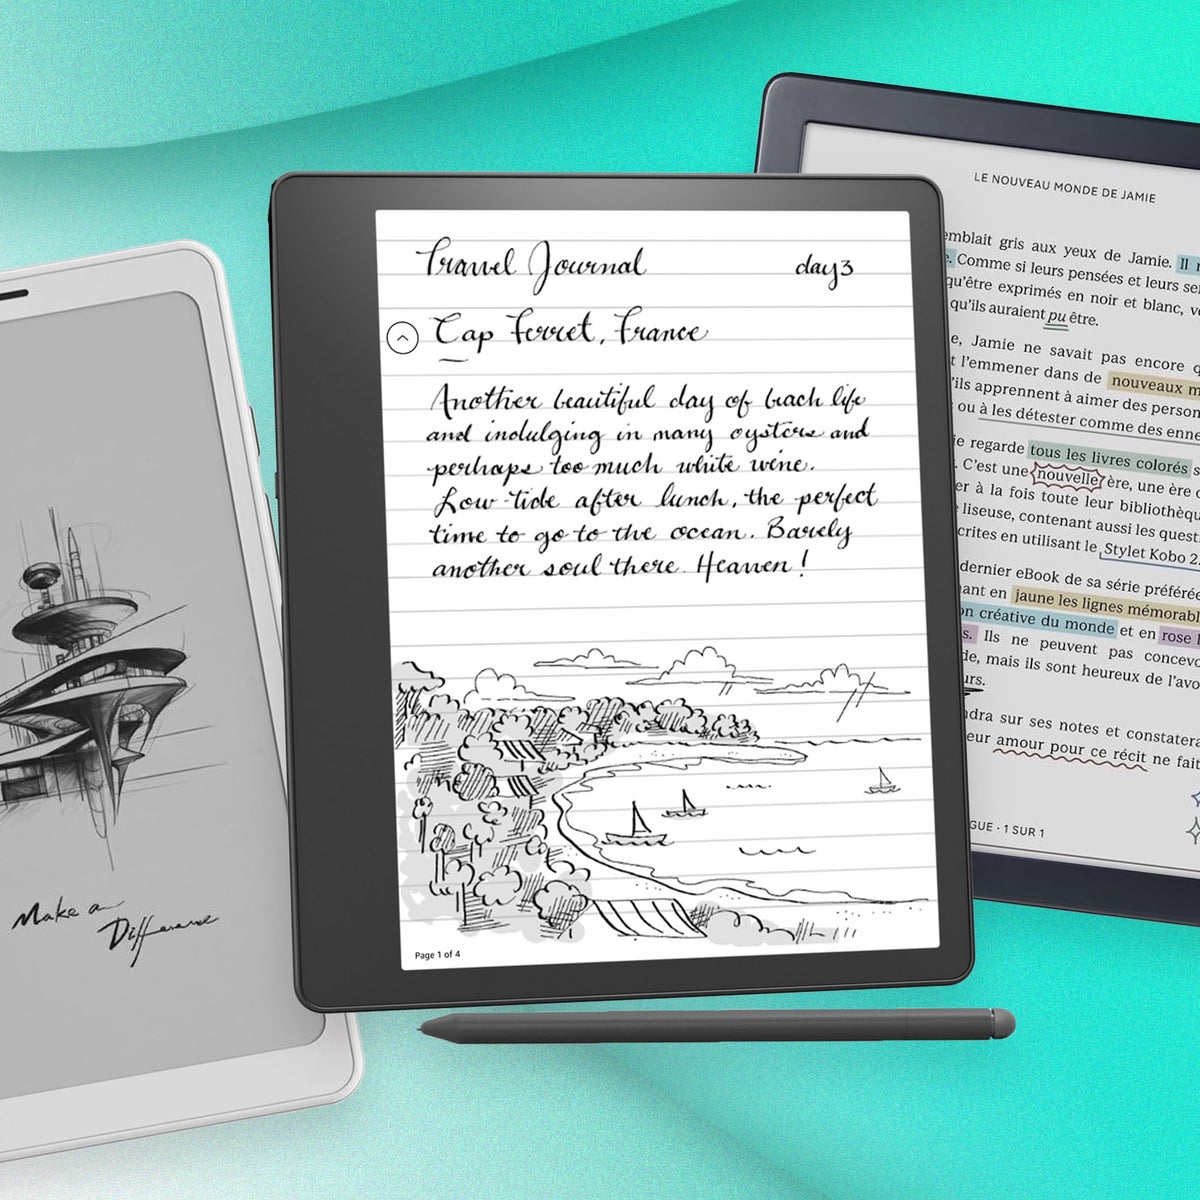 Make a
Difference
Travel Journal
day 3
Cap Ferret, France
Another beautiful day of beach life
and indulging in many oysters and
perhaps too much white wine.
Low tide after lunch, the perfect
time to go to the ocean. Barely
another soul there. Heaven!
Page 1 of 4
LE NOUVEAU MONDE DE JAMIE
emblait gris aux yeux de Jamie. Il
Comme si leurs pensées et leurs
qu'être exprimés en noir et blanc,
qu'ils auraient pu être.
e, Jamie ne savait pas encore
t l'emmener dans de nouveaux
'ils apprennent à aimer des
ou à les détester comme des
ie regarde tous les livres colorés
. C'est une nouvelle ère, une ère
er à la fois toute leur
liseuse, contenant aussi les
crites en utilisant le Stylet Kobo 2.
dernier eBook de sa série préférée
ant en jaune les lignes
on créative du monde et en rose
s. Ils ne peuvent pas
de, mais ils sont heureux de
urs.
ndra sur ses notes et constatera
eur amour pour ce récit ne
GUE · 1 SUR 1